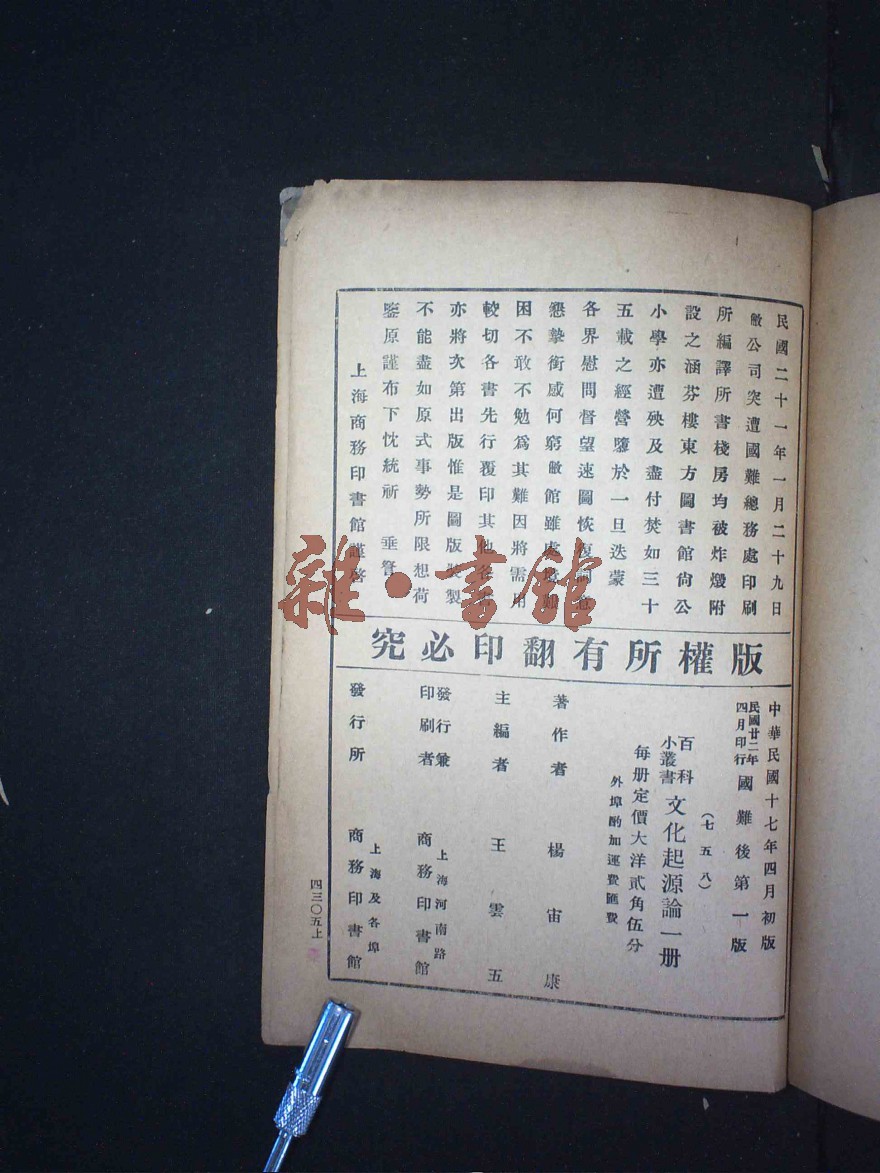 民國二十一年一月二十九日
敝公司突遭國難總務處印刷
所編譯所書棧房均被炸燬附
設之涵芬樓東方圖書館尙公
小學亦遭殃及盡付焚如三十
五載之經營隳於一旦迭蒙
各界慰問督望速圖恢復
懇摯銜感何窮敝館雖處
困不敢不勉爲其難因將需用
較切各書先行覆印其他各
亦將次第出版惟是圖版裝製
不能盡如原式事勢所限想荷
鑒原謹布下忱統祈 垂詧
上海商務印書館謹啓
版權所有翻印必究
中華民國十七年四月初版
民國廿二年四月印行 國難後第一版
(七五八)
百科小叢書 文化起源論一册
每册定價大洋貳角伍分
外埠酌加運費匯費
著作者 楊宙康
主編者 王雲五
發行兼印刷者 上海河南路 商務印書館
發行所 上海及各埠 商務印書館
四三〇五上
雜·書館